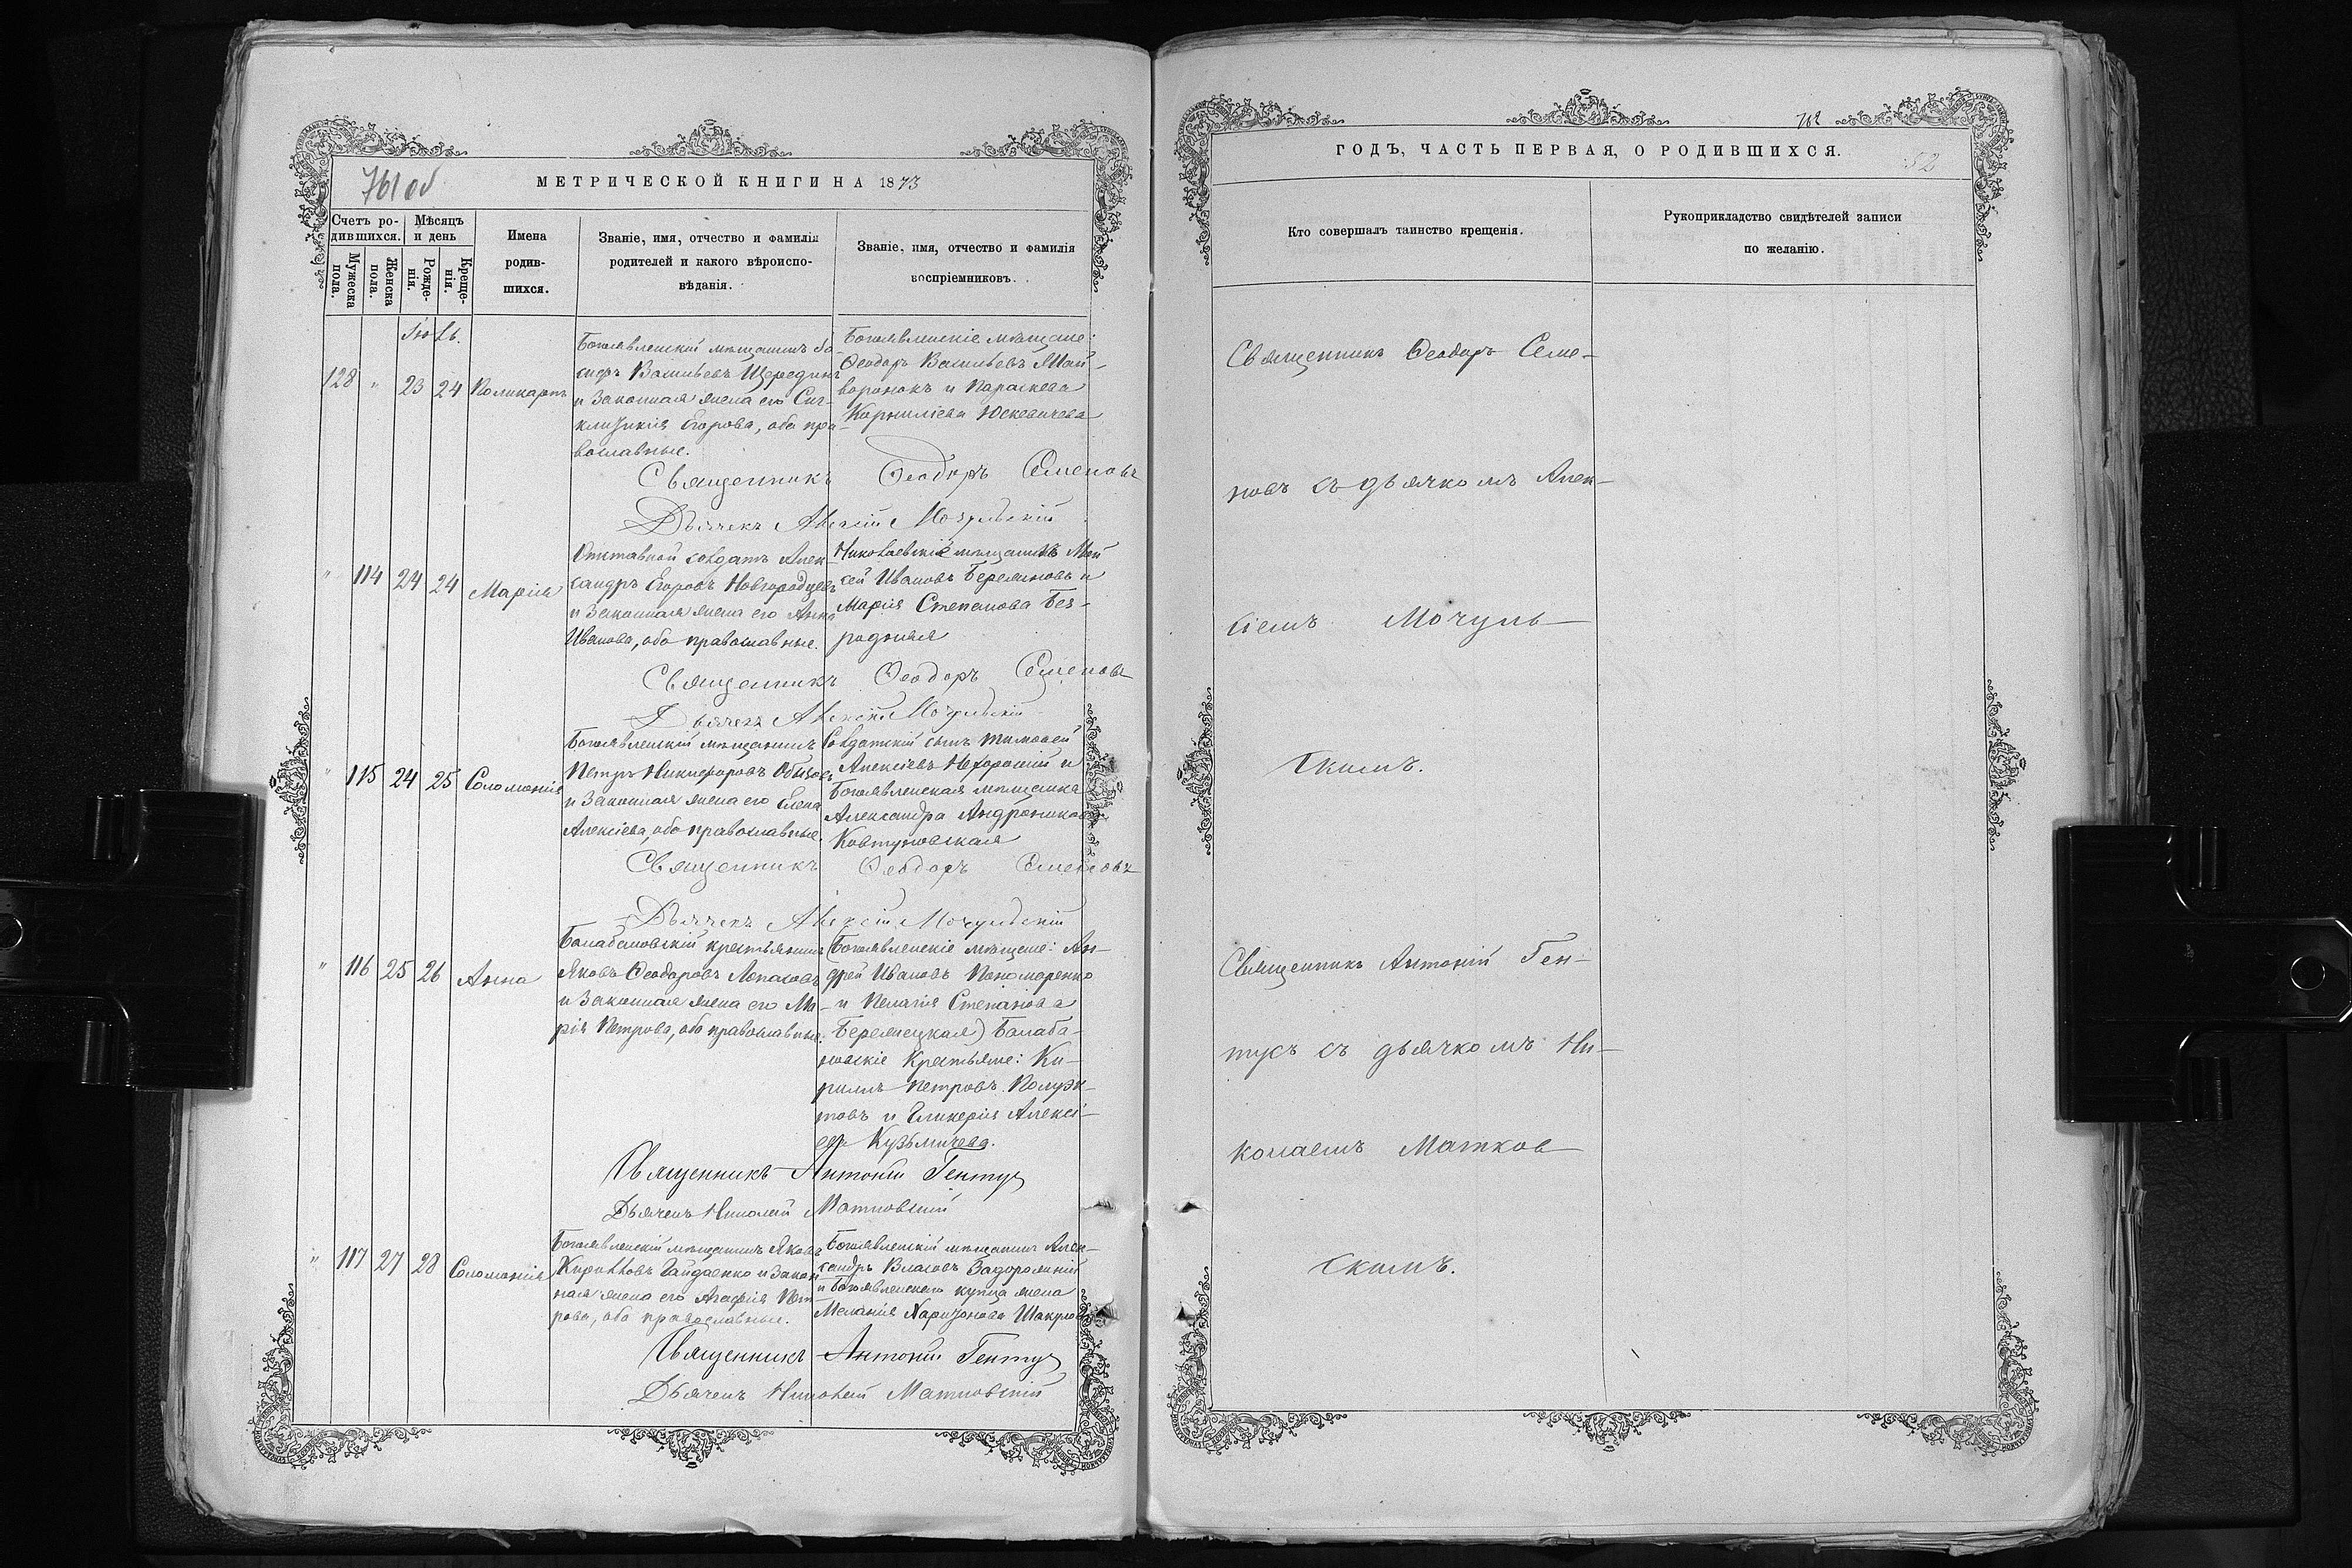 761 об
МЕТРИЧЕСКОЙ КНИГИ НА 1873
Счетъ ро-
дившихся.
Мѣсяцъ
и день
Мужеска
пола.
Женска
пола.
Рожде-
нія.
Креще-
нія.
Имена
родив-
шихся.
Званіе, имя, отчество и фамилія
родителей и какого вѣроиспо-
вѣданія.
Званіе, имя, отчество и фамилія
воспріемниковъ.
Іюль.
128 " 23 24 Поликарпъ
Богоявленскій мѣщанинъ Іо-
сифъ Васильевъ Щерединъ
и законная жена его Син-
клитикія Егорова, оба пра-
вославные.
Богоявленскіе мѣщане:
Ѳеодоръ Васильевъ Май-
воронокъ и Параскева
Корниліева Юскевичева
Священникъ Ѳеодоръ Семеновъ
Дьячекъ Алексій Мочульскій
" 114 24 24 Марія
Отставной солдатъ Алек-
сандръ Егоровъ Новгородцевъ
и законная жена его Анна
Иванова, оба православные.
Николаевскіе мѣщане Мои
сей Ивановъ Бережновъ и
Марія Степанова Без-
родная
Священникъ Ѳеодоръ Семеновъ
Дьячекъ Алексій Мочульскій
" 115 24 25 Соломонія
Богоявленскій мѣщанинъ
Петръ Никифоровъ
и законная жена его Елена
Алексіева, оба православные.
Солдатскій сынъ Тимоѳей
Алексіевъ Нехорошій и
Богоявленская мѣщанка
Александра Андроникова
Ковтуновская
Священникъ Ѳеодоръ Семеновъ
Дьячекъ Алексій Мочульскій
" 116 25 26 Анна
Балабановскій крестьянинъ
Яковъ Ѳеодоровъ Лопаховъ
и законная жена его Ма-
рія Петрова, оба православные.
Богоявленскіе мѣщане: Ан-
дрей Ивановъ Пономаренко
и Пелагія Степанова
Бережецкая) Балаба-
новскіе крестьяне: Ки-
риллъ Петровъ Полуэк-
товъ и Гликерія Алексі-
ева Кузьмичева.
Священникъ Антоній Гентус
Дьячекъ Николай Матковскій
" 117 27 28 Соломонія
Богоявленскій мѣщанинъ Яковъ
Кирилловъ Гайдаенко и закон
ная жена его Агафія Пет-
рова, оба православные.
Богоявленскій мѣщанинъ Алек-
сандръ Власовъ Задорожній
и Богоявленскаго купца жена
Меланія Харитонова
Священникъ Антоній Гентус
Дьячекъ Николай Матковскій
702
ГОДЪ, ЧАСТЬ ПЕРВАЯ, О РОДИВШИХСЯ.
52
Кто совершалъ таинство крещенія.
Рукоприкладство свидѣтелей записи
по желанію.
Священникъ Ѳеодоръ Семе-
новъ съ дьячкомъ Алек-
сіемъ Мочуль-
скимъ.
Священникъ Антоній Ген-
тусъ съ дьячкомъ Ни-
колаемъ Матков-
скимъ.